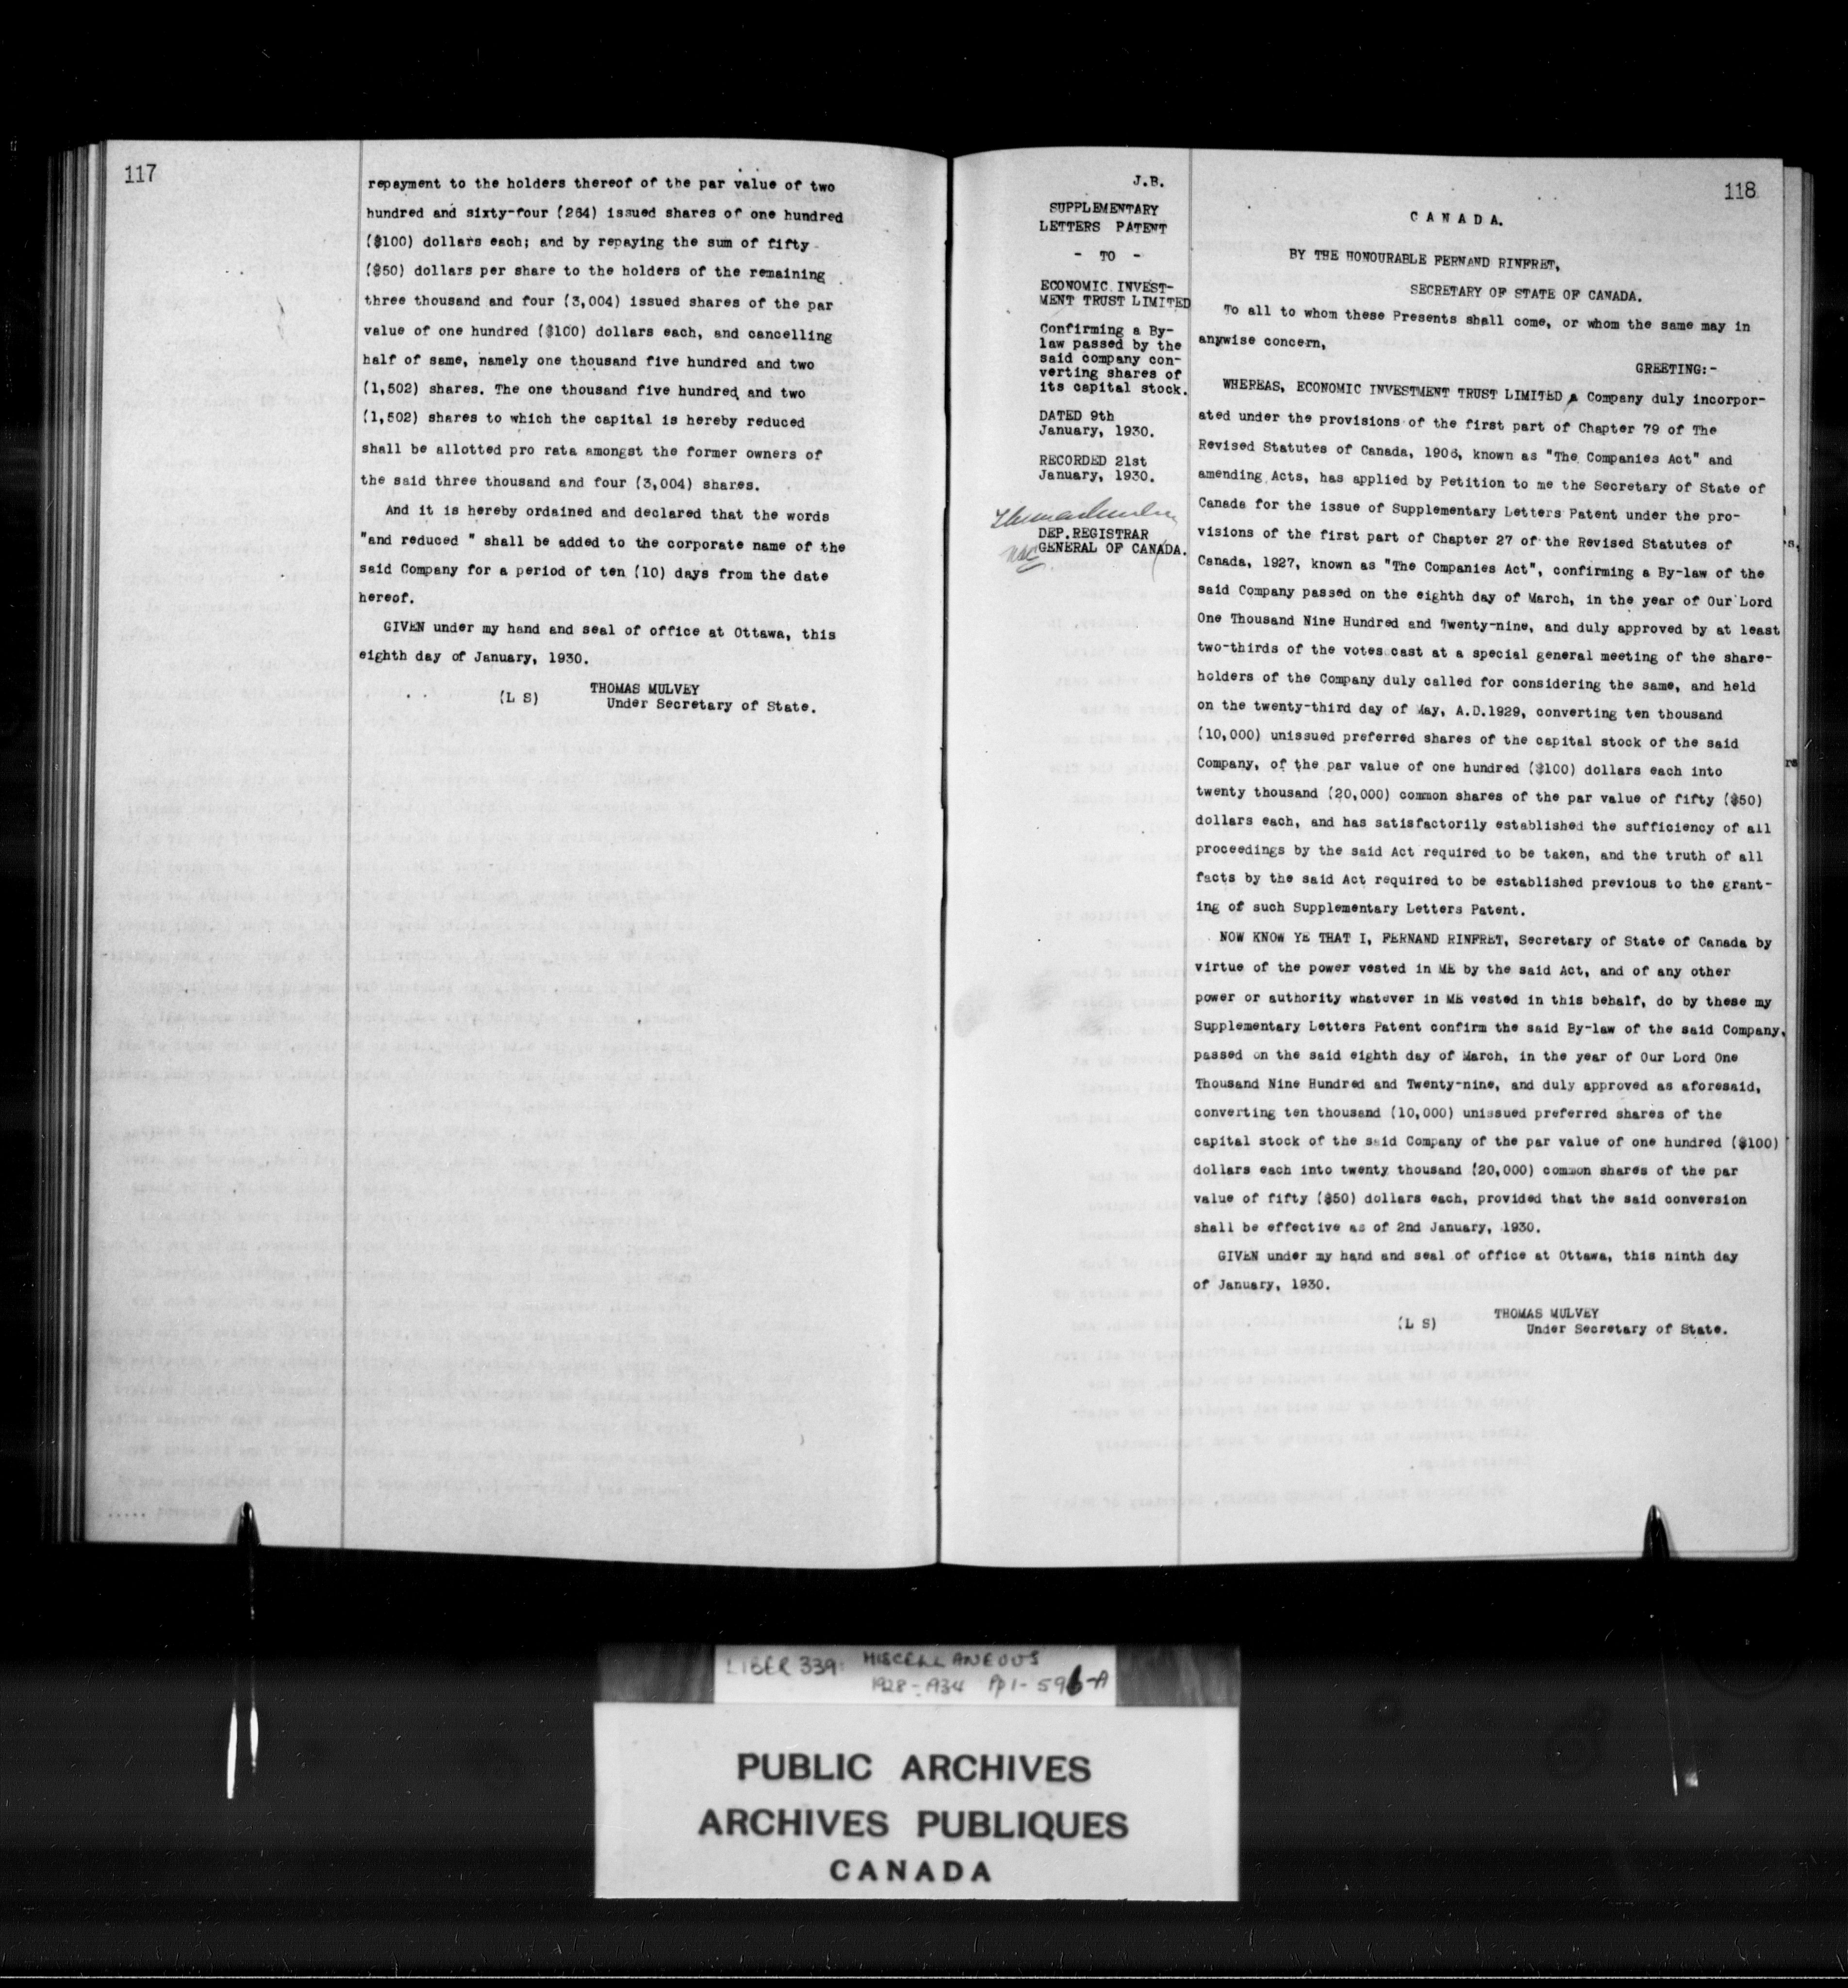 117
repayment to the holders thereof of the par value of two
hundred and sixty-four (264) issued shares of one hundred
($100) dollars each; and by repaying the sum of fifty
($50) dollars per share to the holders of the remaining
three thousand and four (3,004) issued shares of the par
value of one hundred ($100) dollars each, and cancelling
half of same, namely one thousand five hundred and two
(1,502) shares. The one thousand five hundred and two
(1,502) shares to which the capital is hereby reduced
shall be allotted pro rata amongst the former owners of
the said three thousand and four (3,004) shares.
And it is hereby ordained and declared that the words
"and reduced " shall be added to the corporate name of the
said Company for a period of ten (10) days from the date
hereof.
GIVEN under my hand and seal of office at Ottawa, this
eighth day of January, 1930.
(L S) THOMAS MULVEY
Under Secretary of State.
118
J.B.
SUPPLEMENTARY
LETTERS PATENT
- TO -
ECONOMIC INVEST-
MENT TRUST LIMITED
Confirming a By-
law passed by the
said company con-
verting shares of
its capital stock.
DATED 9th
January, 1930.
RECORDED 21st
January, 1930.
DEP.REGISTRAR
GENERAL OF CANADA.
C A N A D A.
BY THE HONOURABLE FERNAND RINFRET,
SECRETARY OF STATE OF CANADA.
To all to whom these Presents shall come, or whom the same may in
anywise concern,
GREETING:-
WHEREAS, ECONOMIC INVESTMENT TRUST LIMITED a Company duly incorpor-
ated under the provisions of the first part of Chapter 79 of The
Revised Statutes of Canada, 1906, known as "The Companies Act" and
amending Acts, has applied by Petition to me the Secretary of State of
Canada for the issue of Supplementary Letters Patent under the pro-
visions of the first part of Chapter 27 of the Revised Statutes of
Canada, 1927, known as "The Companies Act", confirming a By-law of the
said Company passed on the eighth day of March, in the year of Our Lord
One Thousand Nine Hundred and Twenty-nine, and duly approved by at least
two-thirds of the votes cast at a special general meeting of the share-
holders of the Company duly called for considering the same, and held
on the twenty-third day of May, A.D.1929, converting ten thousand
(10,000) unissued preferred shares of the capital stock of the said
Company, of the par value of one hundred ($100) dollars each into
twenty thousand (20,000) common shares of the par value of fifty ($50)
dollars each, and has satisfactorily established the sufficiency of all
proceedings by the said Act required to be taken, and the truth of all
facts by the said Act required to be established previous to the grant-
ing of such Supplementary Letters Patent.
NOW KNOW YE THAT I, FERNAND RINFRET, Secretary of State of Canada by
virtue of the power vested in ME by the said Act, and of any other
power or authority whatever in ME vested in this behalf, do by these my
Supplementary Letters Patent confirm the said By-law of the said Company,
passed on the said eighth day of March, in the year of Our Lord One
Thousand Nine Hundred and Twenty-nine, and duly approved as aforesaid,
converting ten thousand (10,000) unissued preferred shares of the
capital stock of the said Company of the par value of one hundred ($100)
dollars each into twenty thousand (20,000) common shares of the par
value of fifty ($50) dollars each, provided that the said conversion
shall be effective as of 2nd January, 1930.
GIVEN under my hand and seal of office at Ottawa, this ninth day
of January, 1930.
(L S) THOMAS MULVEY
Under Secretary of State.
LIBER 339: MISCELLANEOUS
1928-1934 Pp 1-596-A
PUBLIC ARCHIVES
ARCHIVES PUBLIQUES
CANADA